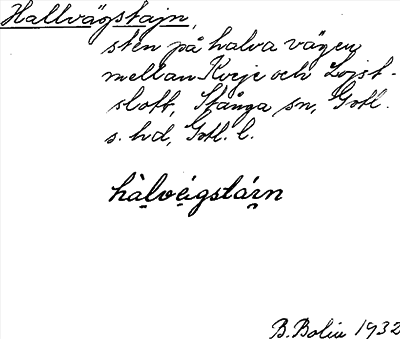 Hallvägstajn,
sten på halva vägen
mellan Kveje och Lojst-
slott, Stånga sn, Gotl.
s. hd, Gotl. l.
hàlvégstáin
B. Bolin 1932